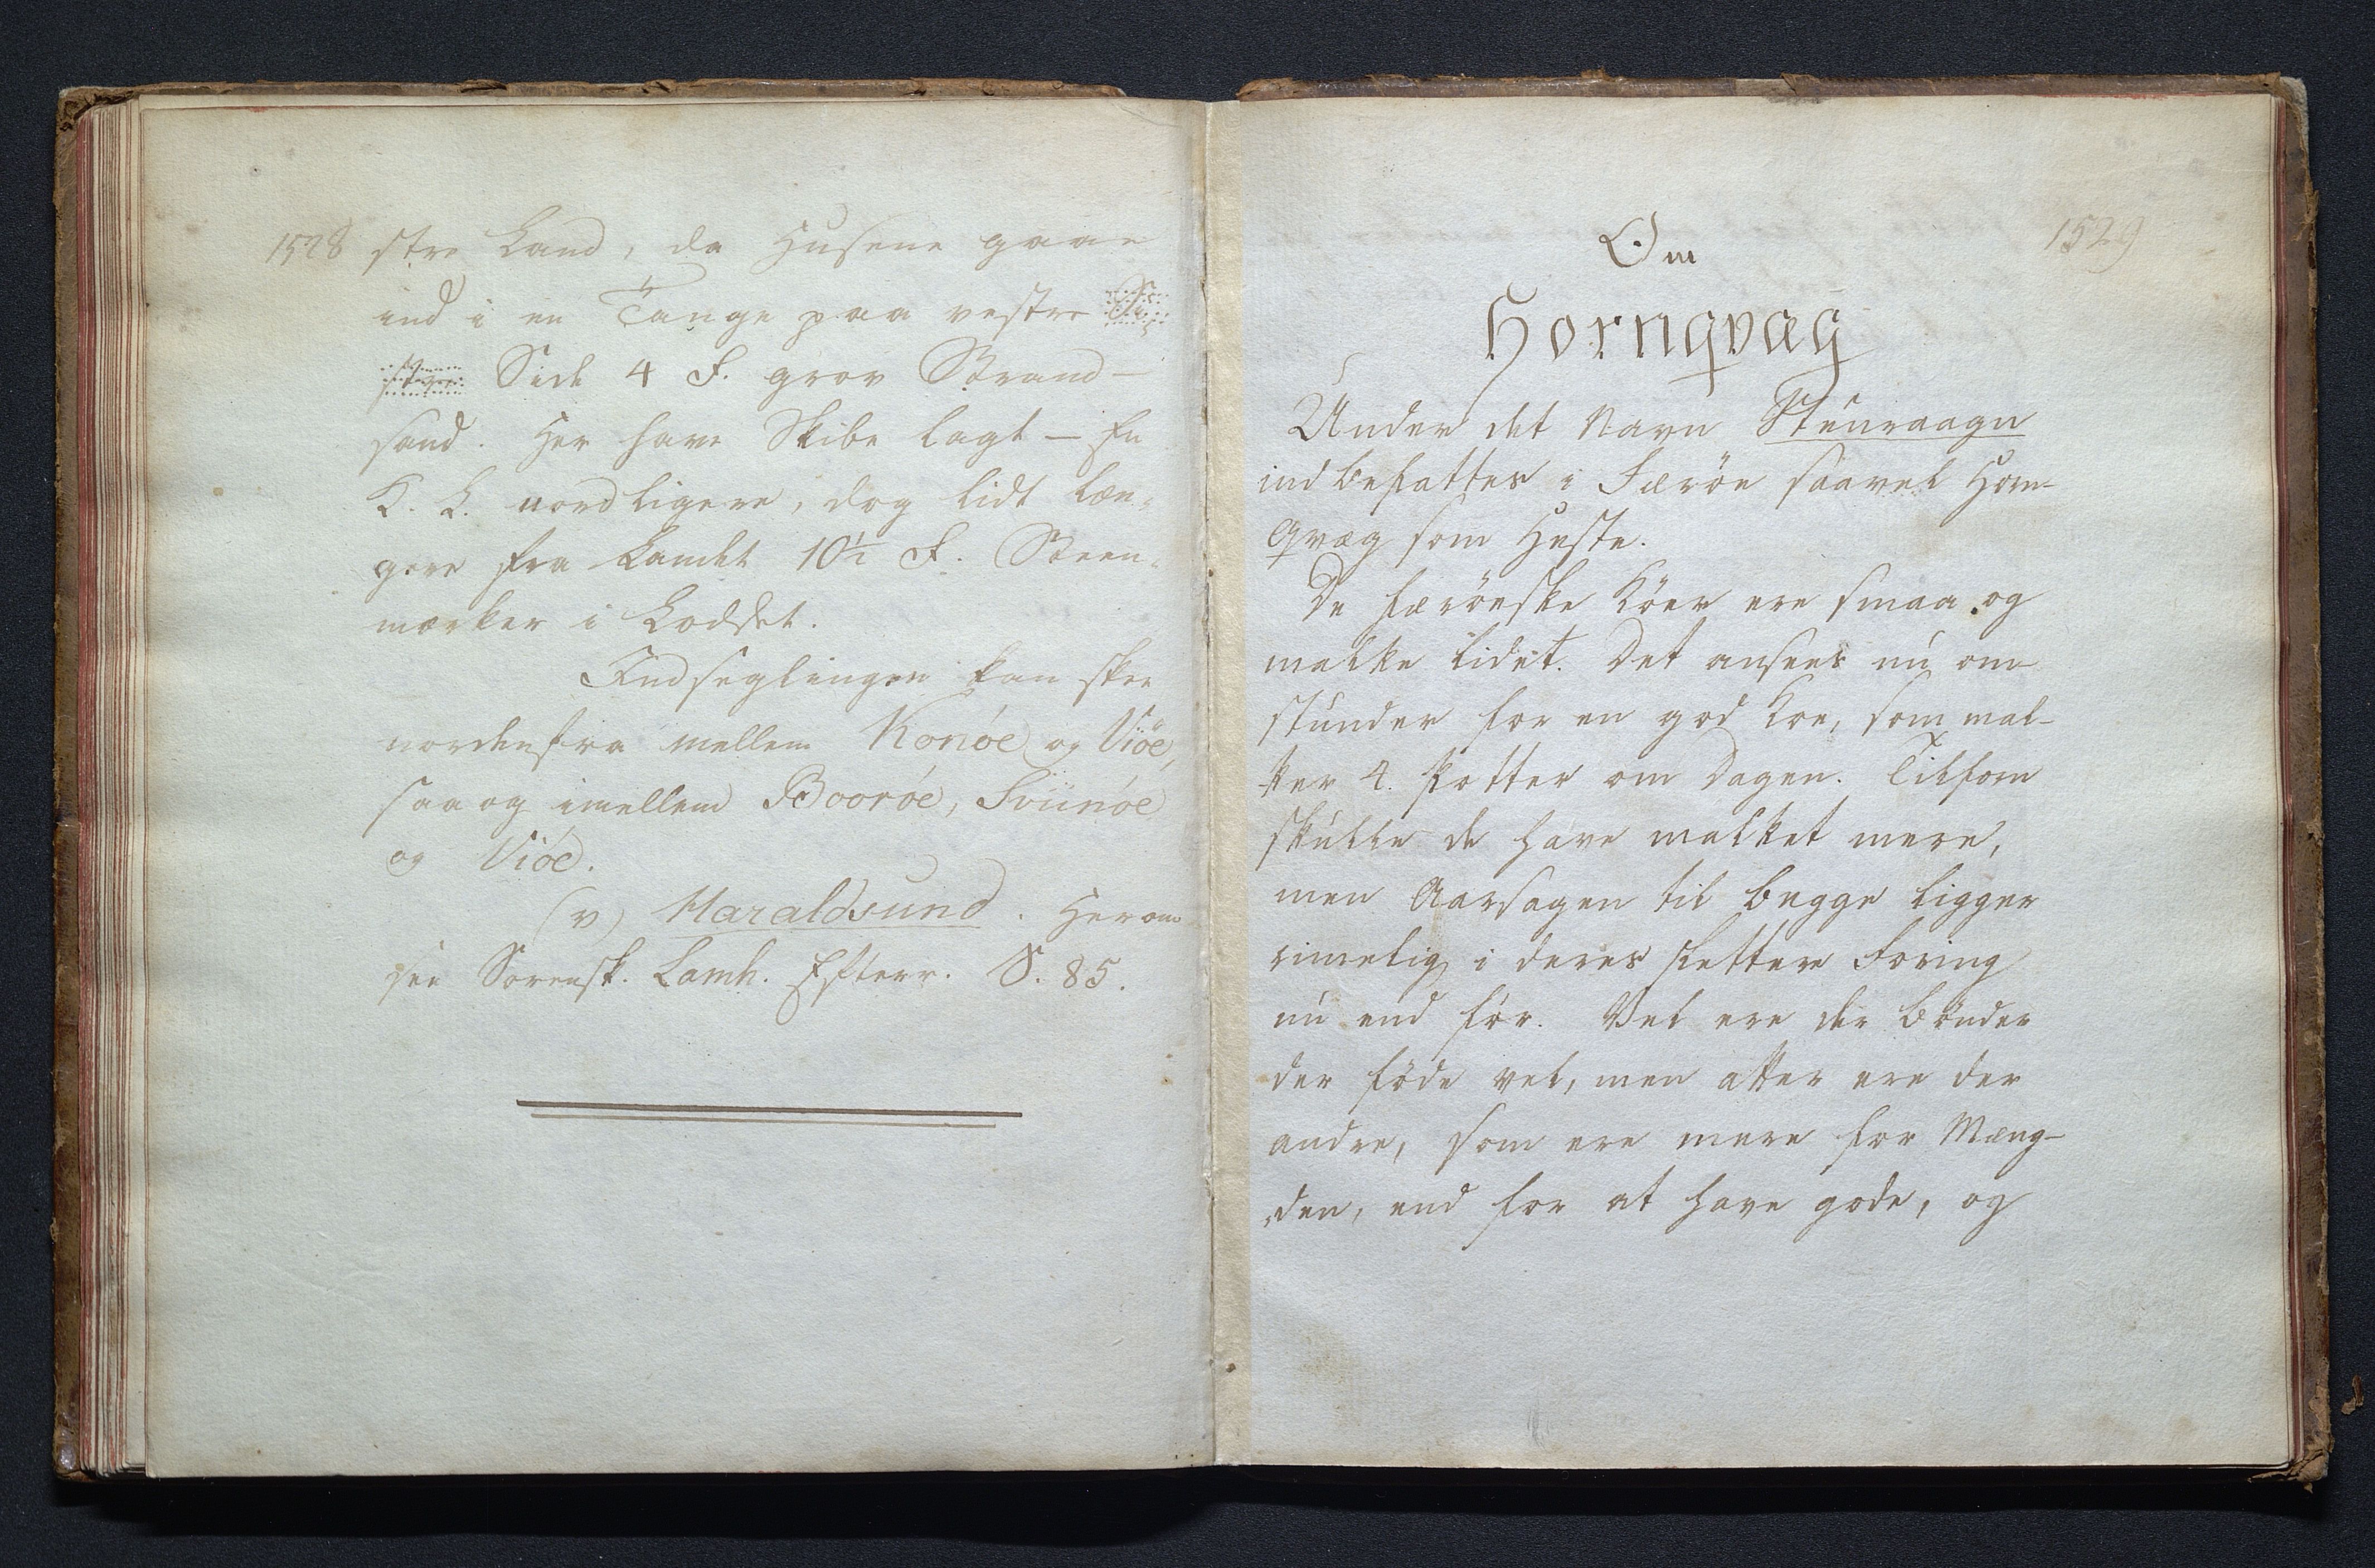 1528
stre Land, da Husene gaae
ind i en Tange paa vestre
Side 4 F. grov Strand-
sand. Her have Skibe lagt – En
K. L. nordligere, dog lidt læn-
gere fra Landet 10½ F. Steen-
mærker i Loddet.
Indseglingen kan skee
nordenfra mellem Konöe og Viöe,
saa og imellem Boröe, Sviinöe
og Viöe.
(v) Haraldsund. Herom
see Sorensk. Lamh. Efterr. S. 85.
1529
Om
Hornqvæg
Under det Navn Stuuraagn
indbefattes i Færöe saavel Horn-
qvæg som Heste.
De færöeske Köer ere smaa og
malke lidet. Det ansees nu om-
stunder for en god Koe, som mal-
ker 4. Potter om Dagen. Tilforn
skulle de have malket mere,
men Aarsagen til begge ligger
rimelig i deres slettere Foring
nu end för. Vel ere der Bönder
der föde vel, men atter ere der
andre, som ere mere for Mæng-
den, end for at have gode, og